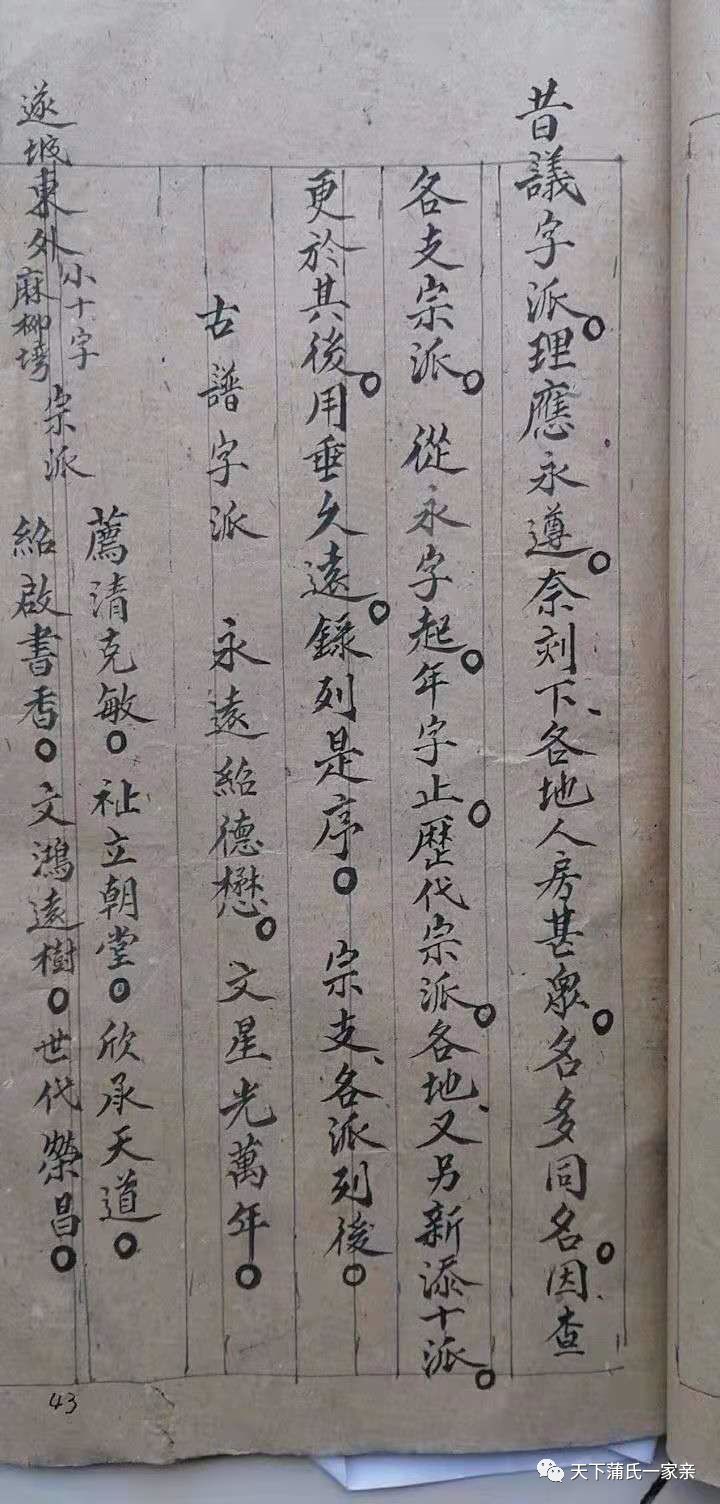 昔議字派。理應永遵。奈刻下、各地人房甚衆。名多同名。因、查
各支宗派。從永字起。年字止。歷代宗派。各地、又另新添十派。
更於其後。用垂久遠。錄列是序。宗支、各派列後。
古譜字派 永遠紹德懋。文星光萬年。
薦清克敏。祉立朝堂。欣承天道。
遂坂東外小十字麻柳塆宗派
紹啟書香。文鴻遠樹。世代榮昌。
43
天下蒲氏一家亲